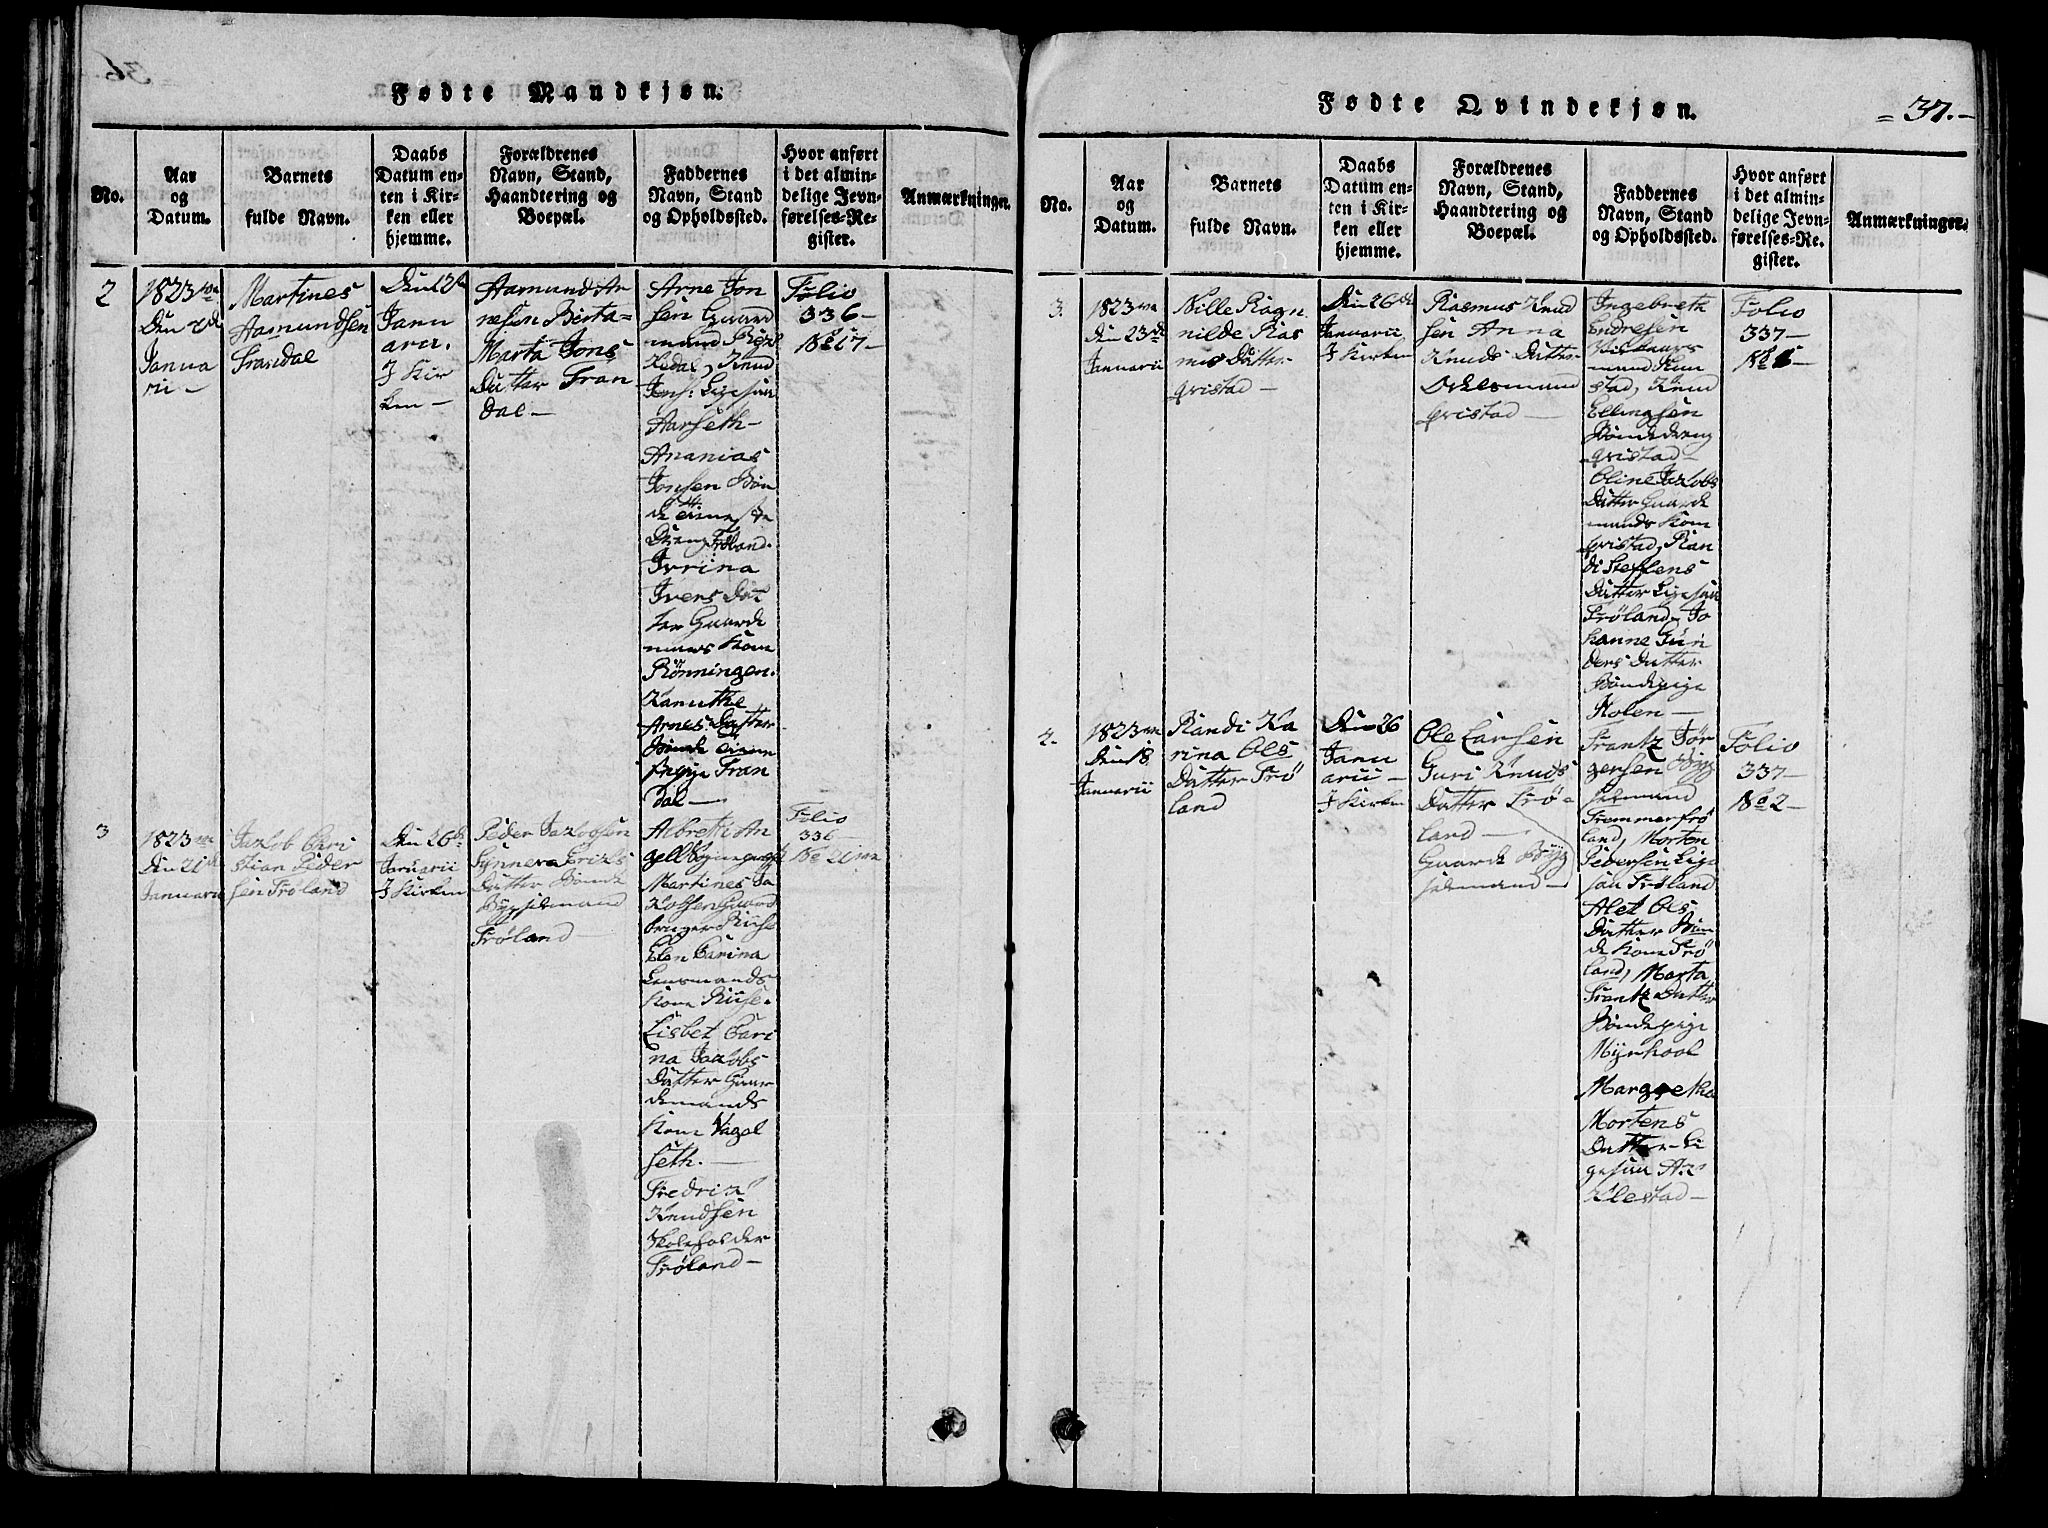 Fødte Mandkjøn.
No.
Aar
og
Datum.
Barnets
fulde Navn.
Daabs
Datum en-
ten i Kir-
ken eller
hjemme.
Forældrenes
Navn, Stand,
Haandtering og
Boepæl.
Faddernes
Navn, Stand
og Opholdssted.
Hvor anført
i det almin-
delige Jevn-
førelses-Re-
gister.
Anmærkninger.
2
1823
Den 2de
Janua
rii -
Martines
Aamundsen
Den 12te
Janu
arii.
I Kir
ken -
Aamund Ar
nesen Birta=
Marta Jons
Datter Fran
dal -
Arne Jon
sen Gaard
mand
Knud
Jons: Ligesaa
Aarseth -
Ananias
Jonsen Bøn
de
Dreng Frøland.
Ivrina
Ivers Dat
ter Gaard
mans Kone
Rönningen.
Kanuthe
Arnes Datter
Bonde
Fran
dal -
Folio
336 -
No 17 -
3
1823
Den 21de
Januarii
Jakob Cri
stian Peder
sen Frøland
Den 26de
Januarii
I Kirken
Peder Jakobsen
Synneva Eriks
Datter Bonde
Bygselmand
Frøland -
Albreth An
gell
Martines Ja
kobsen Gaard
bruger Riise
Elen Carina
Lensmands
Kone Riise.
Lisbet Cari
na Jakobs
Datter Gaar
demands
Kone Vagel
seth. -
Fredrik
Knudsen
Skoleholder
Frøland -
Folio
336 -
No 21
Fødte Qvindekjøn.
= 37. -
No.
Aar
og
Datum.
Barnets
fulde Navn.
Daabs
Datum en-
ten i Kir-
ken eller
hjemme.
Forældrenes
Navn, Stand,
Haandtering og
Boepæl.
Faddernes
Navn, Stand
og Opholdssted.
Hvor anført
i det almin-
delige Jevn-
førelses-Re-
gister.
Anmærkninger.
3.
1823
Den 23de
Januarii
Nille Ragn
nilde Ras
mus Datter
qvistad -
Den 26de
Januarii
I Kirken
Rasmus Knud
sen Anna
Knuds Datter
qvistad -
Ingebreth
Endresen
mand
stad, Knud
Ellingsen
Bondedreng
qvistad -
Oline Jakobs
Datter Gaarde
mands Kone
qvistad, Ran
di Steffens
Datter Ligesaa
Frøland - Jo
hanne Gun
ders Datter
Bondepige
Holen -
Folio
337 -
No 1 -
4.
1823
Den 18
Januarii
Randi Ka
rina Ols
Datter Frö
land
Den 26
Janu
arii -
I Kirken
Ole Larsen
Guri Knuds
Datter Frø=
land -
Gaarde Byg
selmand -
Frantz Jør
gensen Byg
selmand
Fremmerfrö
land, Morten
Pedersen Lige
saa Frøland
Alet Ols
Datter Bon
de Kone Frö
land, Marta
Frantz Datter
Bondepige
Myrhool
Margrethe
Mortens
Datter Li
gesaa
Folio
337 -
No 2 -